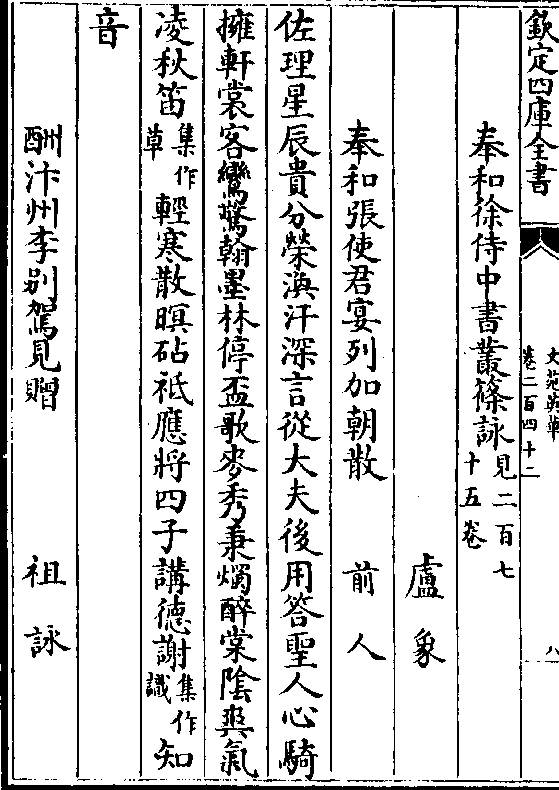 欽定四庫全書
文苑英華
卷二百四十二
八
奉和徐侍中書叢篠詠見二百七十五卷
盧象
奉和張使君宴列加朝散 前人
佐理星辰貴分榮渙汗深言從大夫後用答聖人心騎
擁軒裳客鸞驚翰墨林停盃歌麥秀秉燭醉棠陰爽氣
凌秋笛集作草輕寒散暝砧祗應將四子講德謝集作識知
音
酬汴州李别駕見贈 祖詠